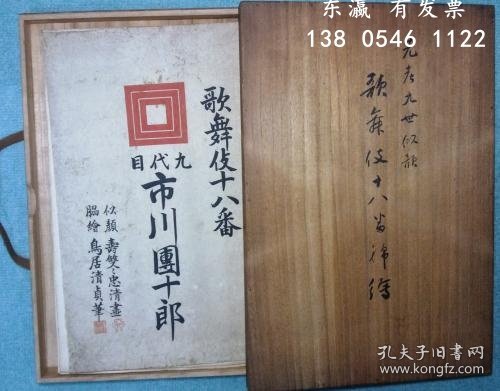 东瀛 有发票
138 0546 1122
歌舞伎十八番
九代目
市川團十郎
似顔 壽雙々忠清畫
脇繪 鳥居清貞筆
九世似顔
歌舞伎十八番錦繪
孔夫子旧书网
www.kongfz.com